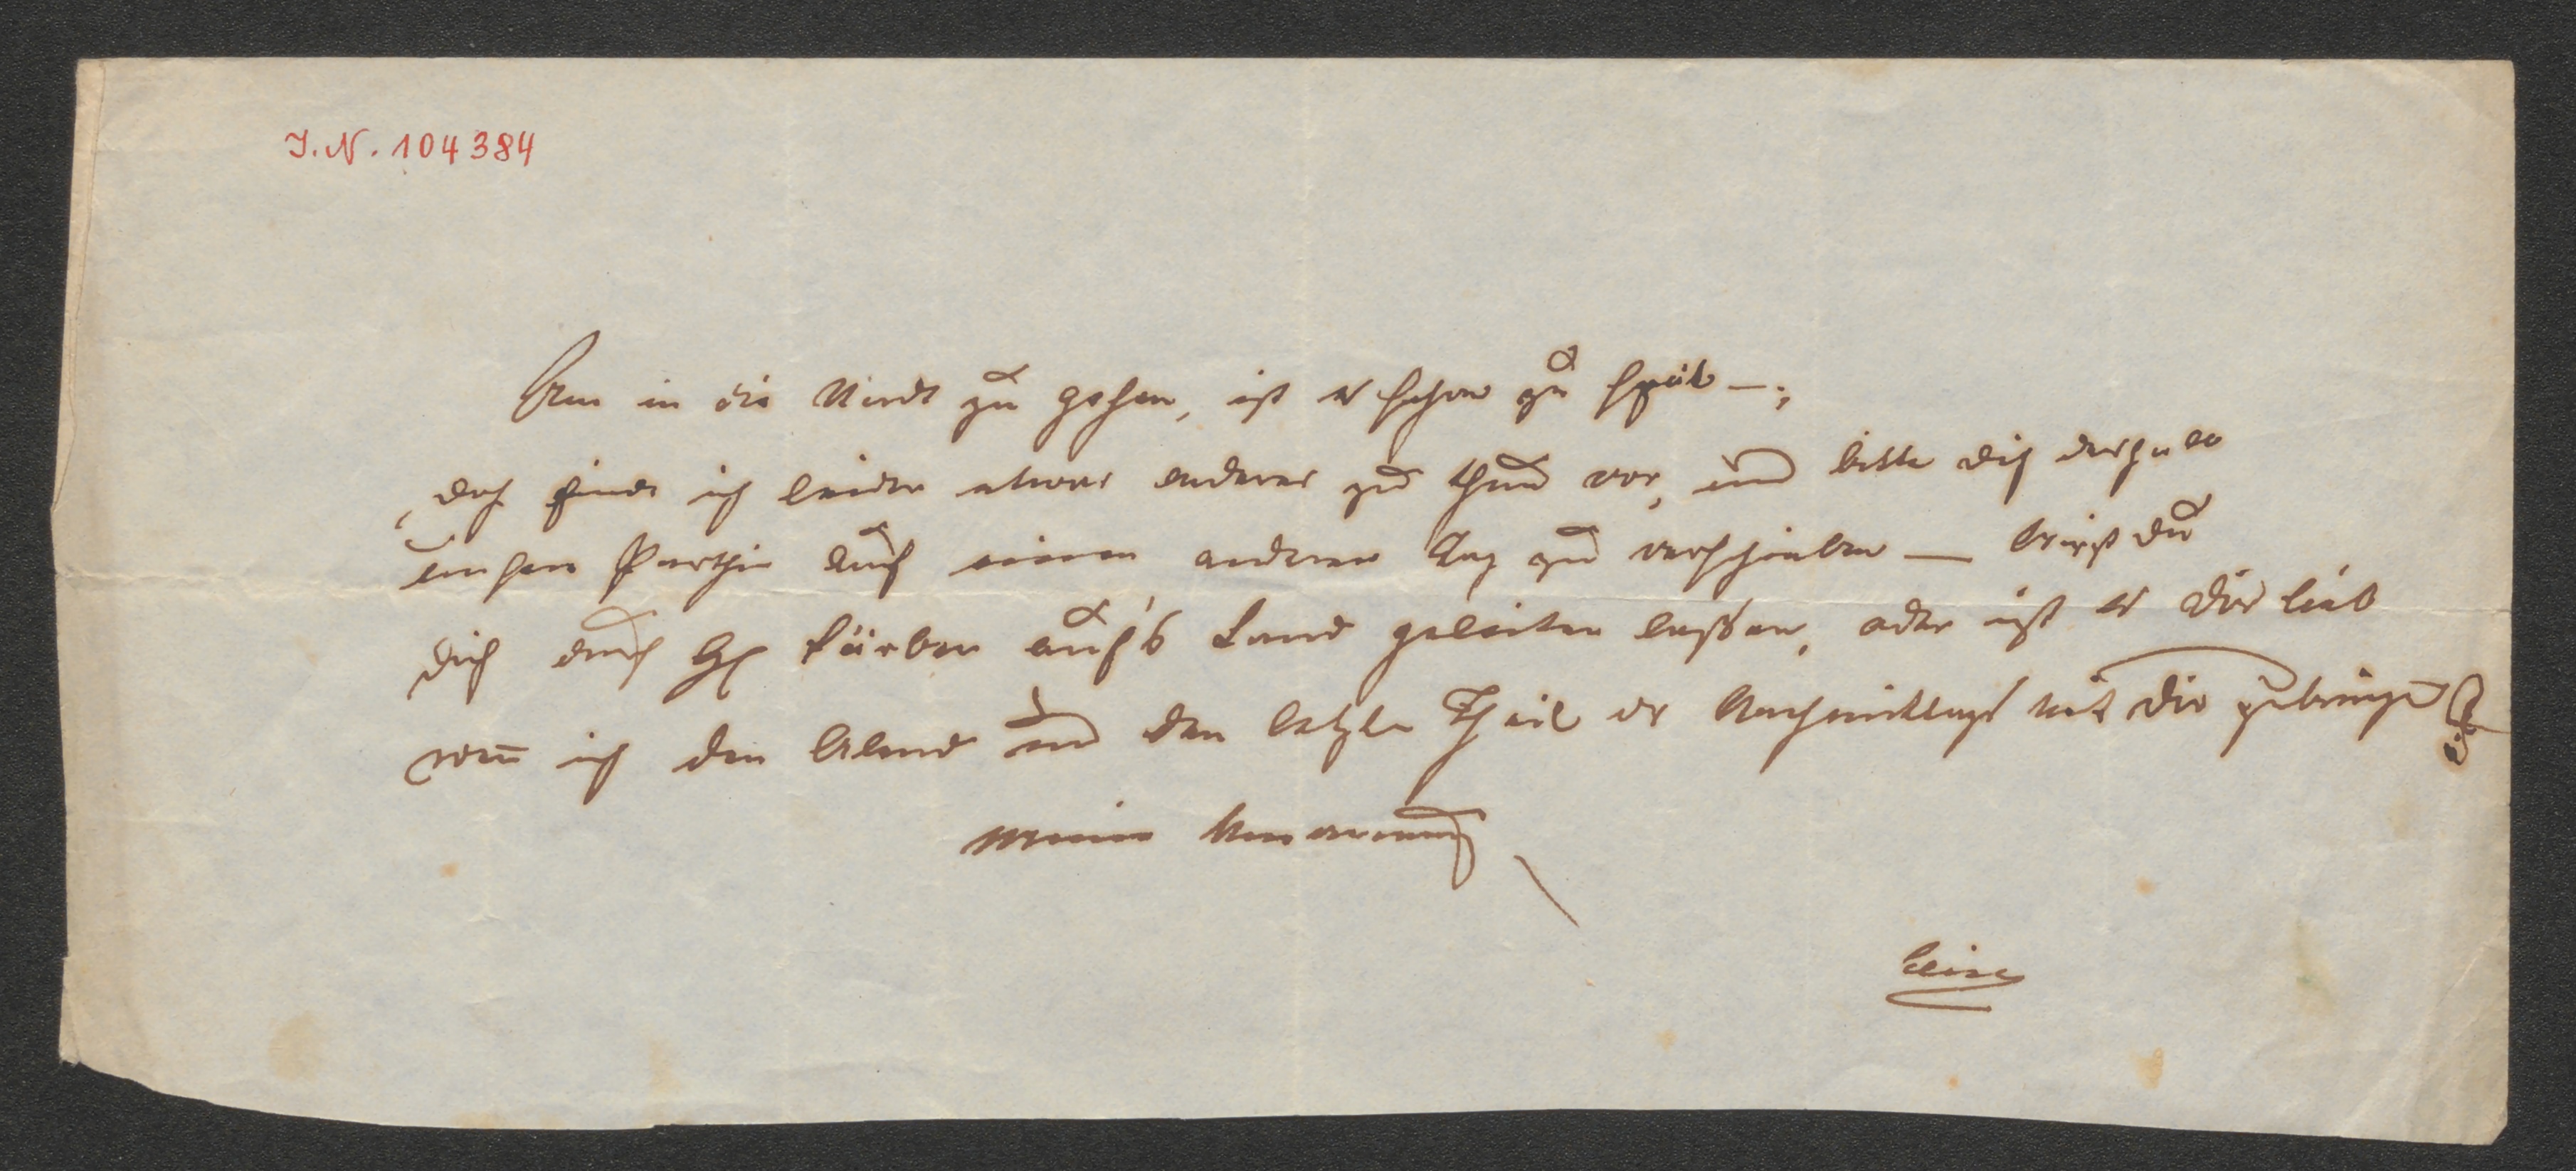 I.N. 104384
Um in die Stadt zu gehen, ist es schon zu spät –;
doch finde ich leider etwas anderes zu thun vor, und bitte dich deshalb
unsere Parthie auf einen anderen Tag zu verschieben — Wirst du
dich durch H Färber auf's Land geleiten lassen, oder ist es dir lieb
wenn ich den Abend und den letzten Theil des Nachmittags mit dir zubringe?
meine